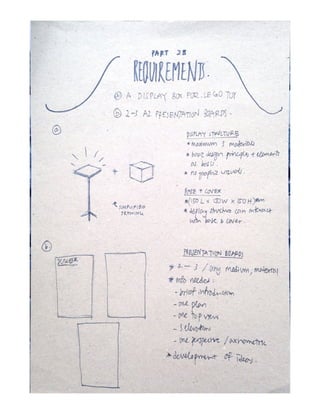 PART 2B
REQUIREMENTS.
(a) A DISPLAY BOX FOR LEGO TOY
(b) 2-3 A2 PRESENTATION BOARDS.
(a)
DISPLAY STRUCTURE
• maximum 3 materials
• basic design principles + elements
as basis.
• no graphic visuals
+
* SIMPLIFIED
DRAWING
BASE + COVER
• (150L x 150W x 150H)mm
• display structure can interact
with base & cover.
(b)
PRESENTATION BOARDS
* 2 - 3 / any medium, materials
* info needed:
- brief introduction
- one plan
- one top view
- 3 elevations
- one perspective / axonometric
* development of ideas.